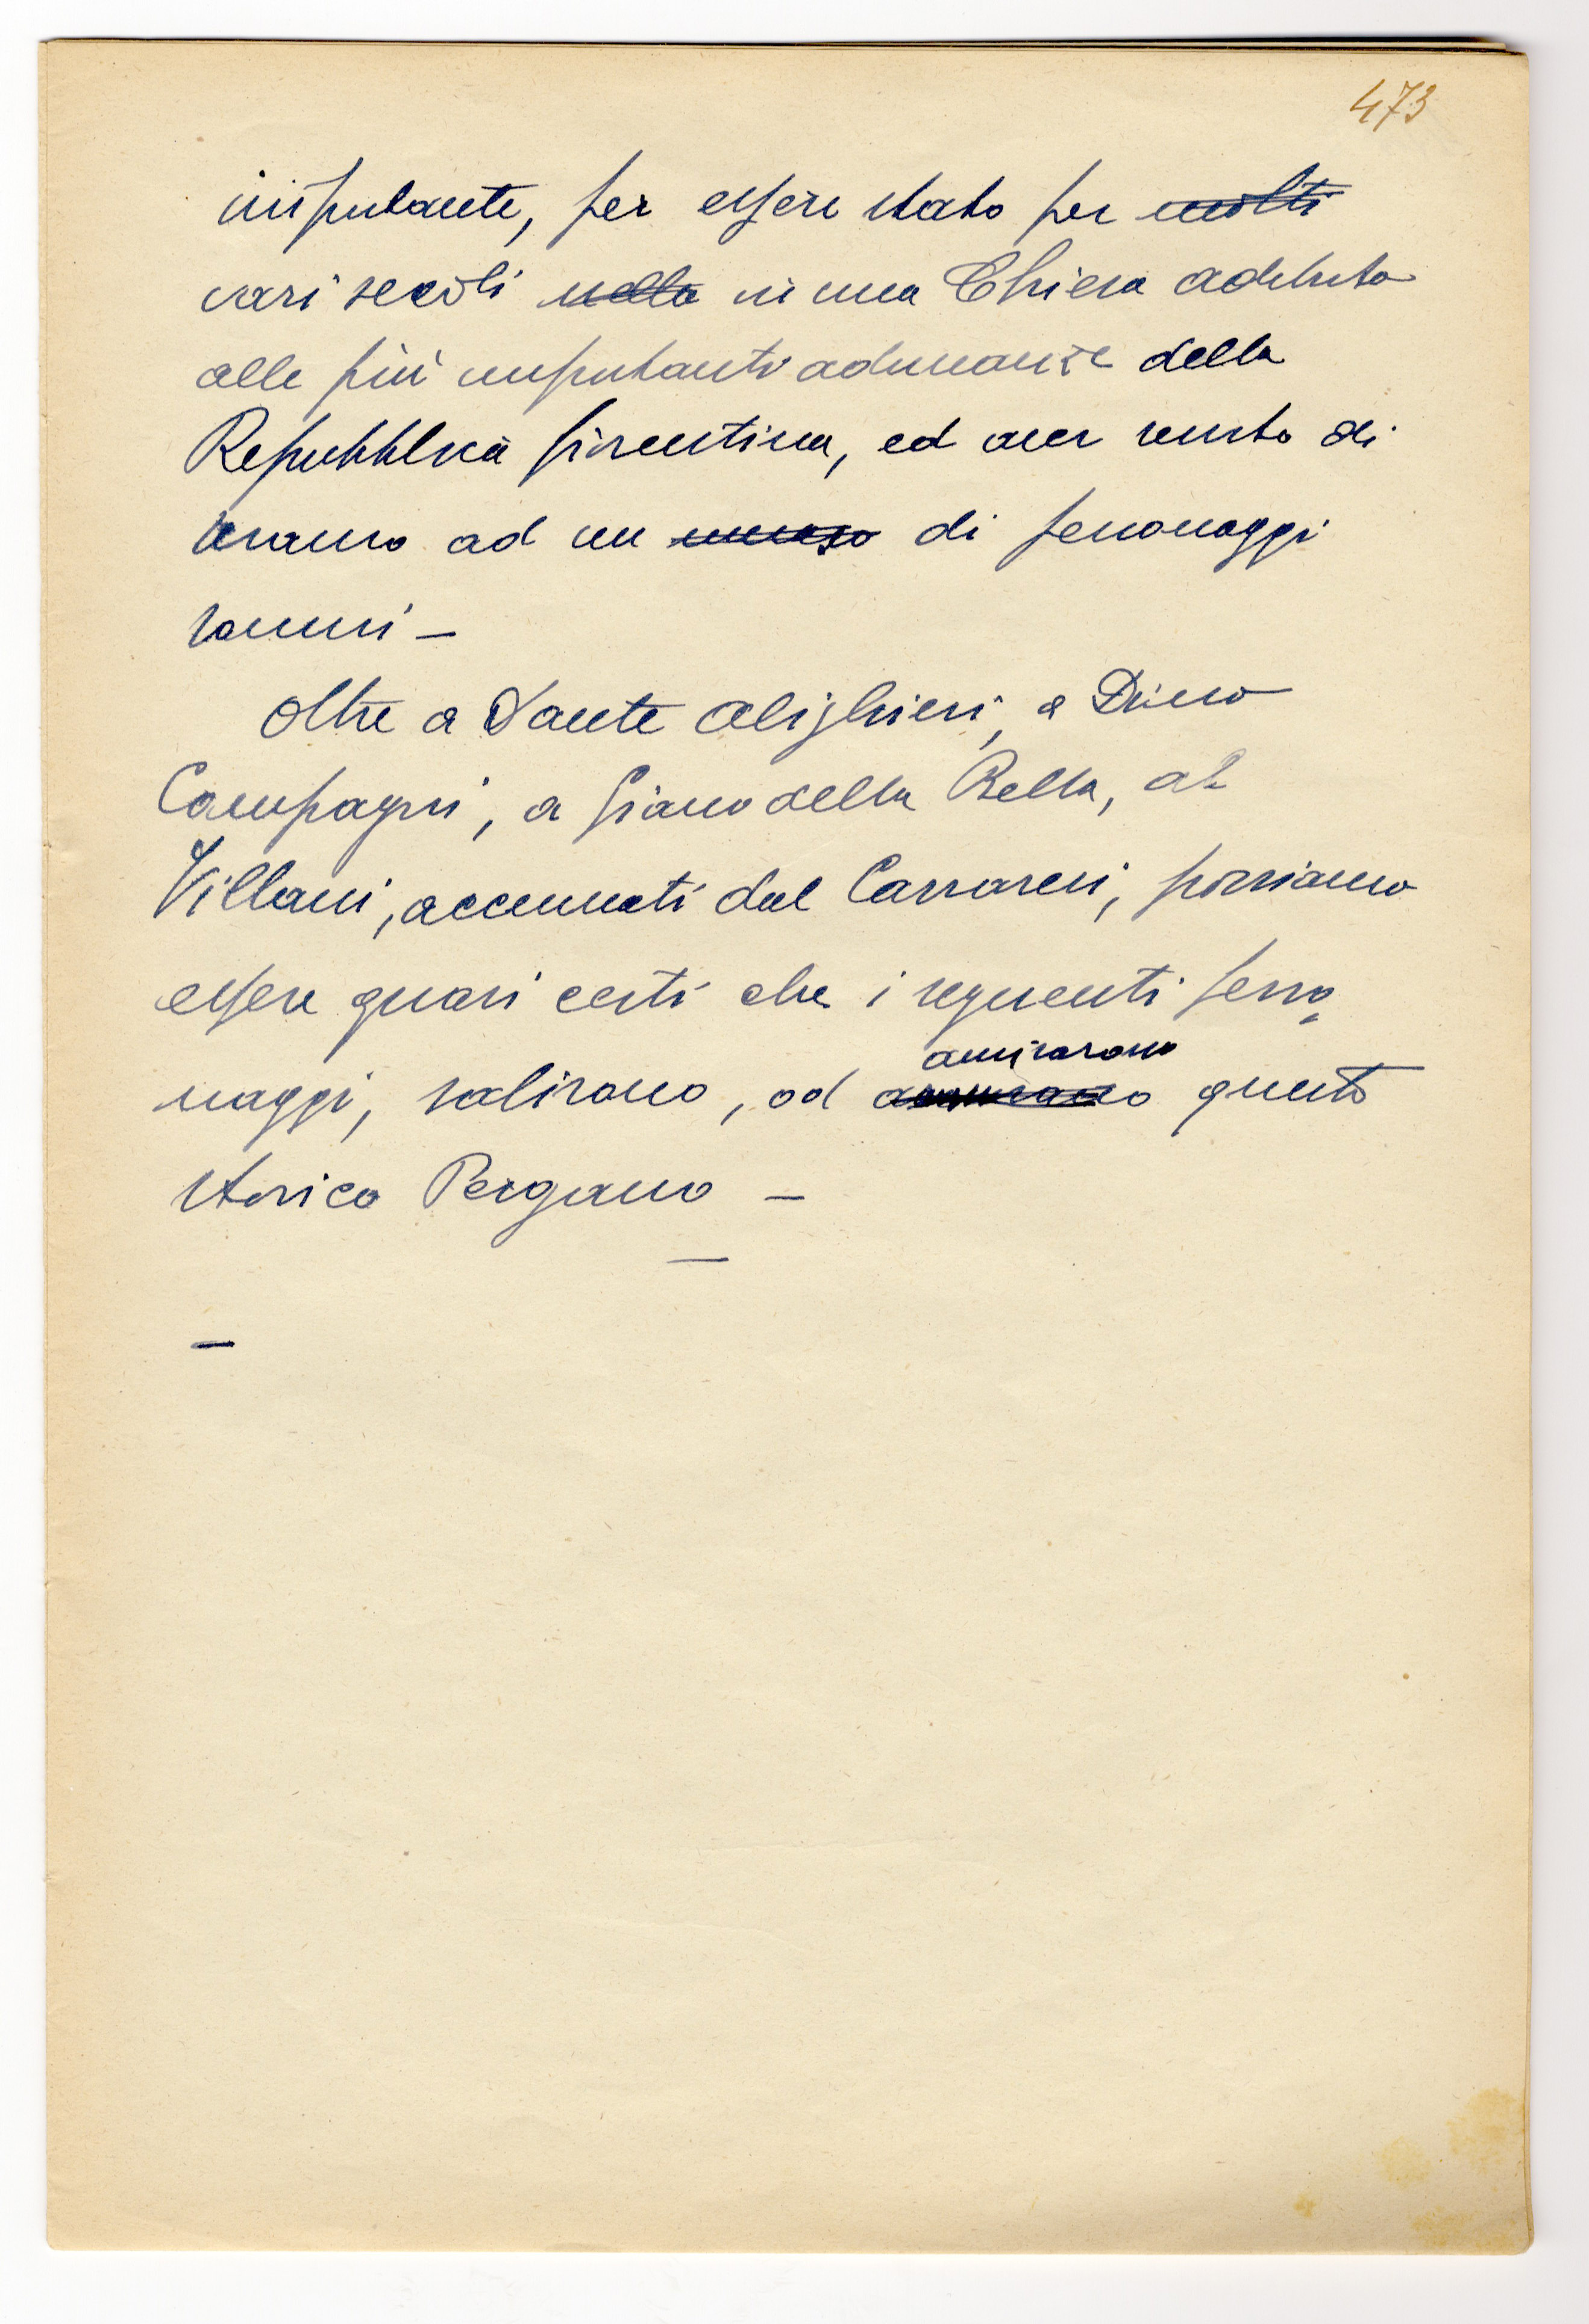 473
importante, per essere stato per molti
vari secoli nella in una Chiesa adibita
alle più importanti adunanze della
Repubblica fiorentina, ed aver servito di
ad un di personaggi
sommi –
Oltre a Dante Alighieri, a Dino
Compagni, a Giano della Bella, al
Villani, accennati dal Carrareri, possiamo
essere quasi certi che i seguenti perso
naggi, salirono, od amirarono questo
storico Pergamo –
–
–